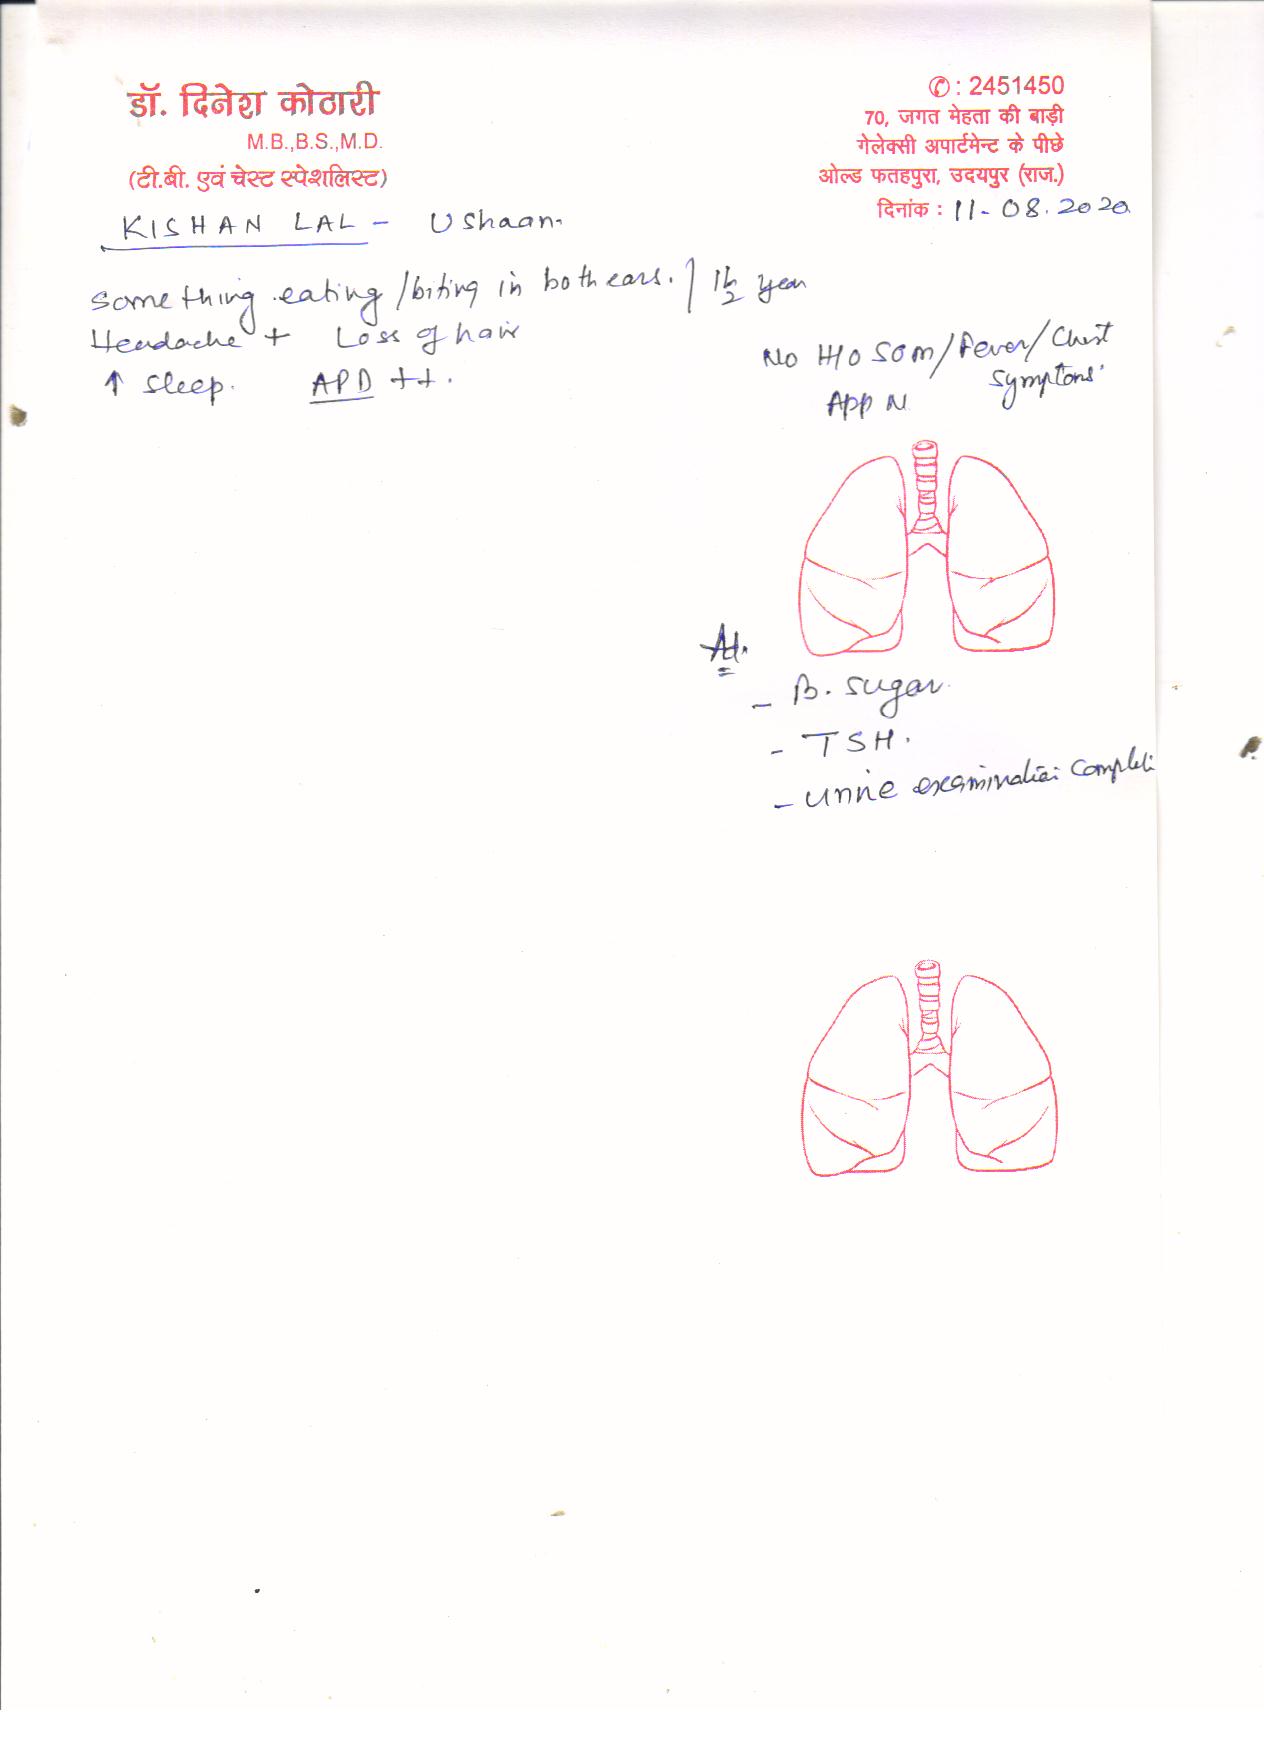 डॉ. दिनेश कोठारी
M.B.,B.S.,M.D.
(टी.बी. एवं चेस्ट स्पेशलिस्ट)
✆ : 2451450
70, जगत मेहता की बाड़ी
गेलेक्सी अपार्टमेन्ट के पीछे
ओल्ड फतहपुरा, उदयपुर (राज.)
दिनांक : 11-08.2020
KISHAN LAL - Ushaan.
Something eating/biting in both ears. / 1½ year
Headache + Loss of hair
↑ sleep. APD ++.
No H/O SOM/Fever/Chest
symptoms
App N
- B. sugar.
- TSH.
- urine examination